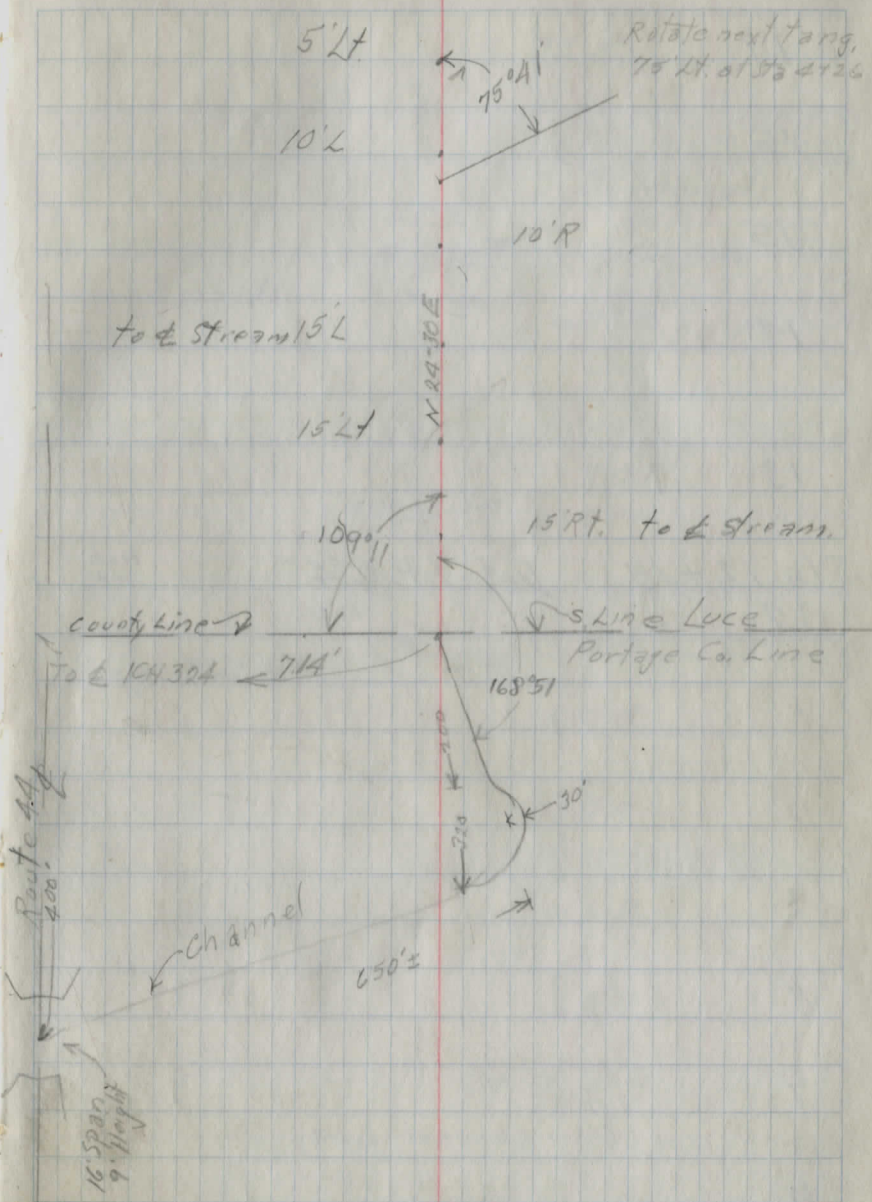 5' Lt.
Rotate next tang.
75' Lt. at Sta 4+26
75°41'
10' L
10' R
N 24-30 E
to ℄ Stream 15' L
15' Lt
109°11
15' Rt. to ℄ Stream.
County Line
S. Line Luce
Portage Co. Line
To ℄ ICH 324
714'
168°51
200
30'
320
Route 44
400'
Channel
650'±
16' Span
9' Height